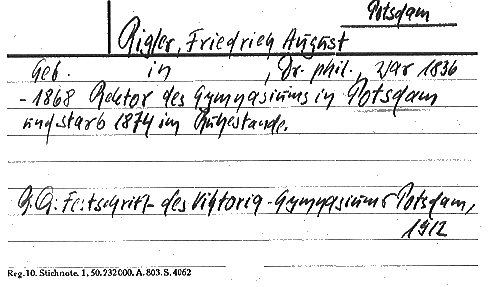 Potsdam
Rigler, Friedrich August
Geb. in , Dr. phil., war 1836
- 1868 Rektor des Gymnasiums in Potsdam
und starb 1874 im Ruhestande.
Festschrift des Viktoria-Gymnasiums Potsdam,
1912
Reg. 10. Stichnote. 1, 50. 232000. A. 803. S. 4062